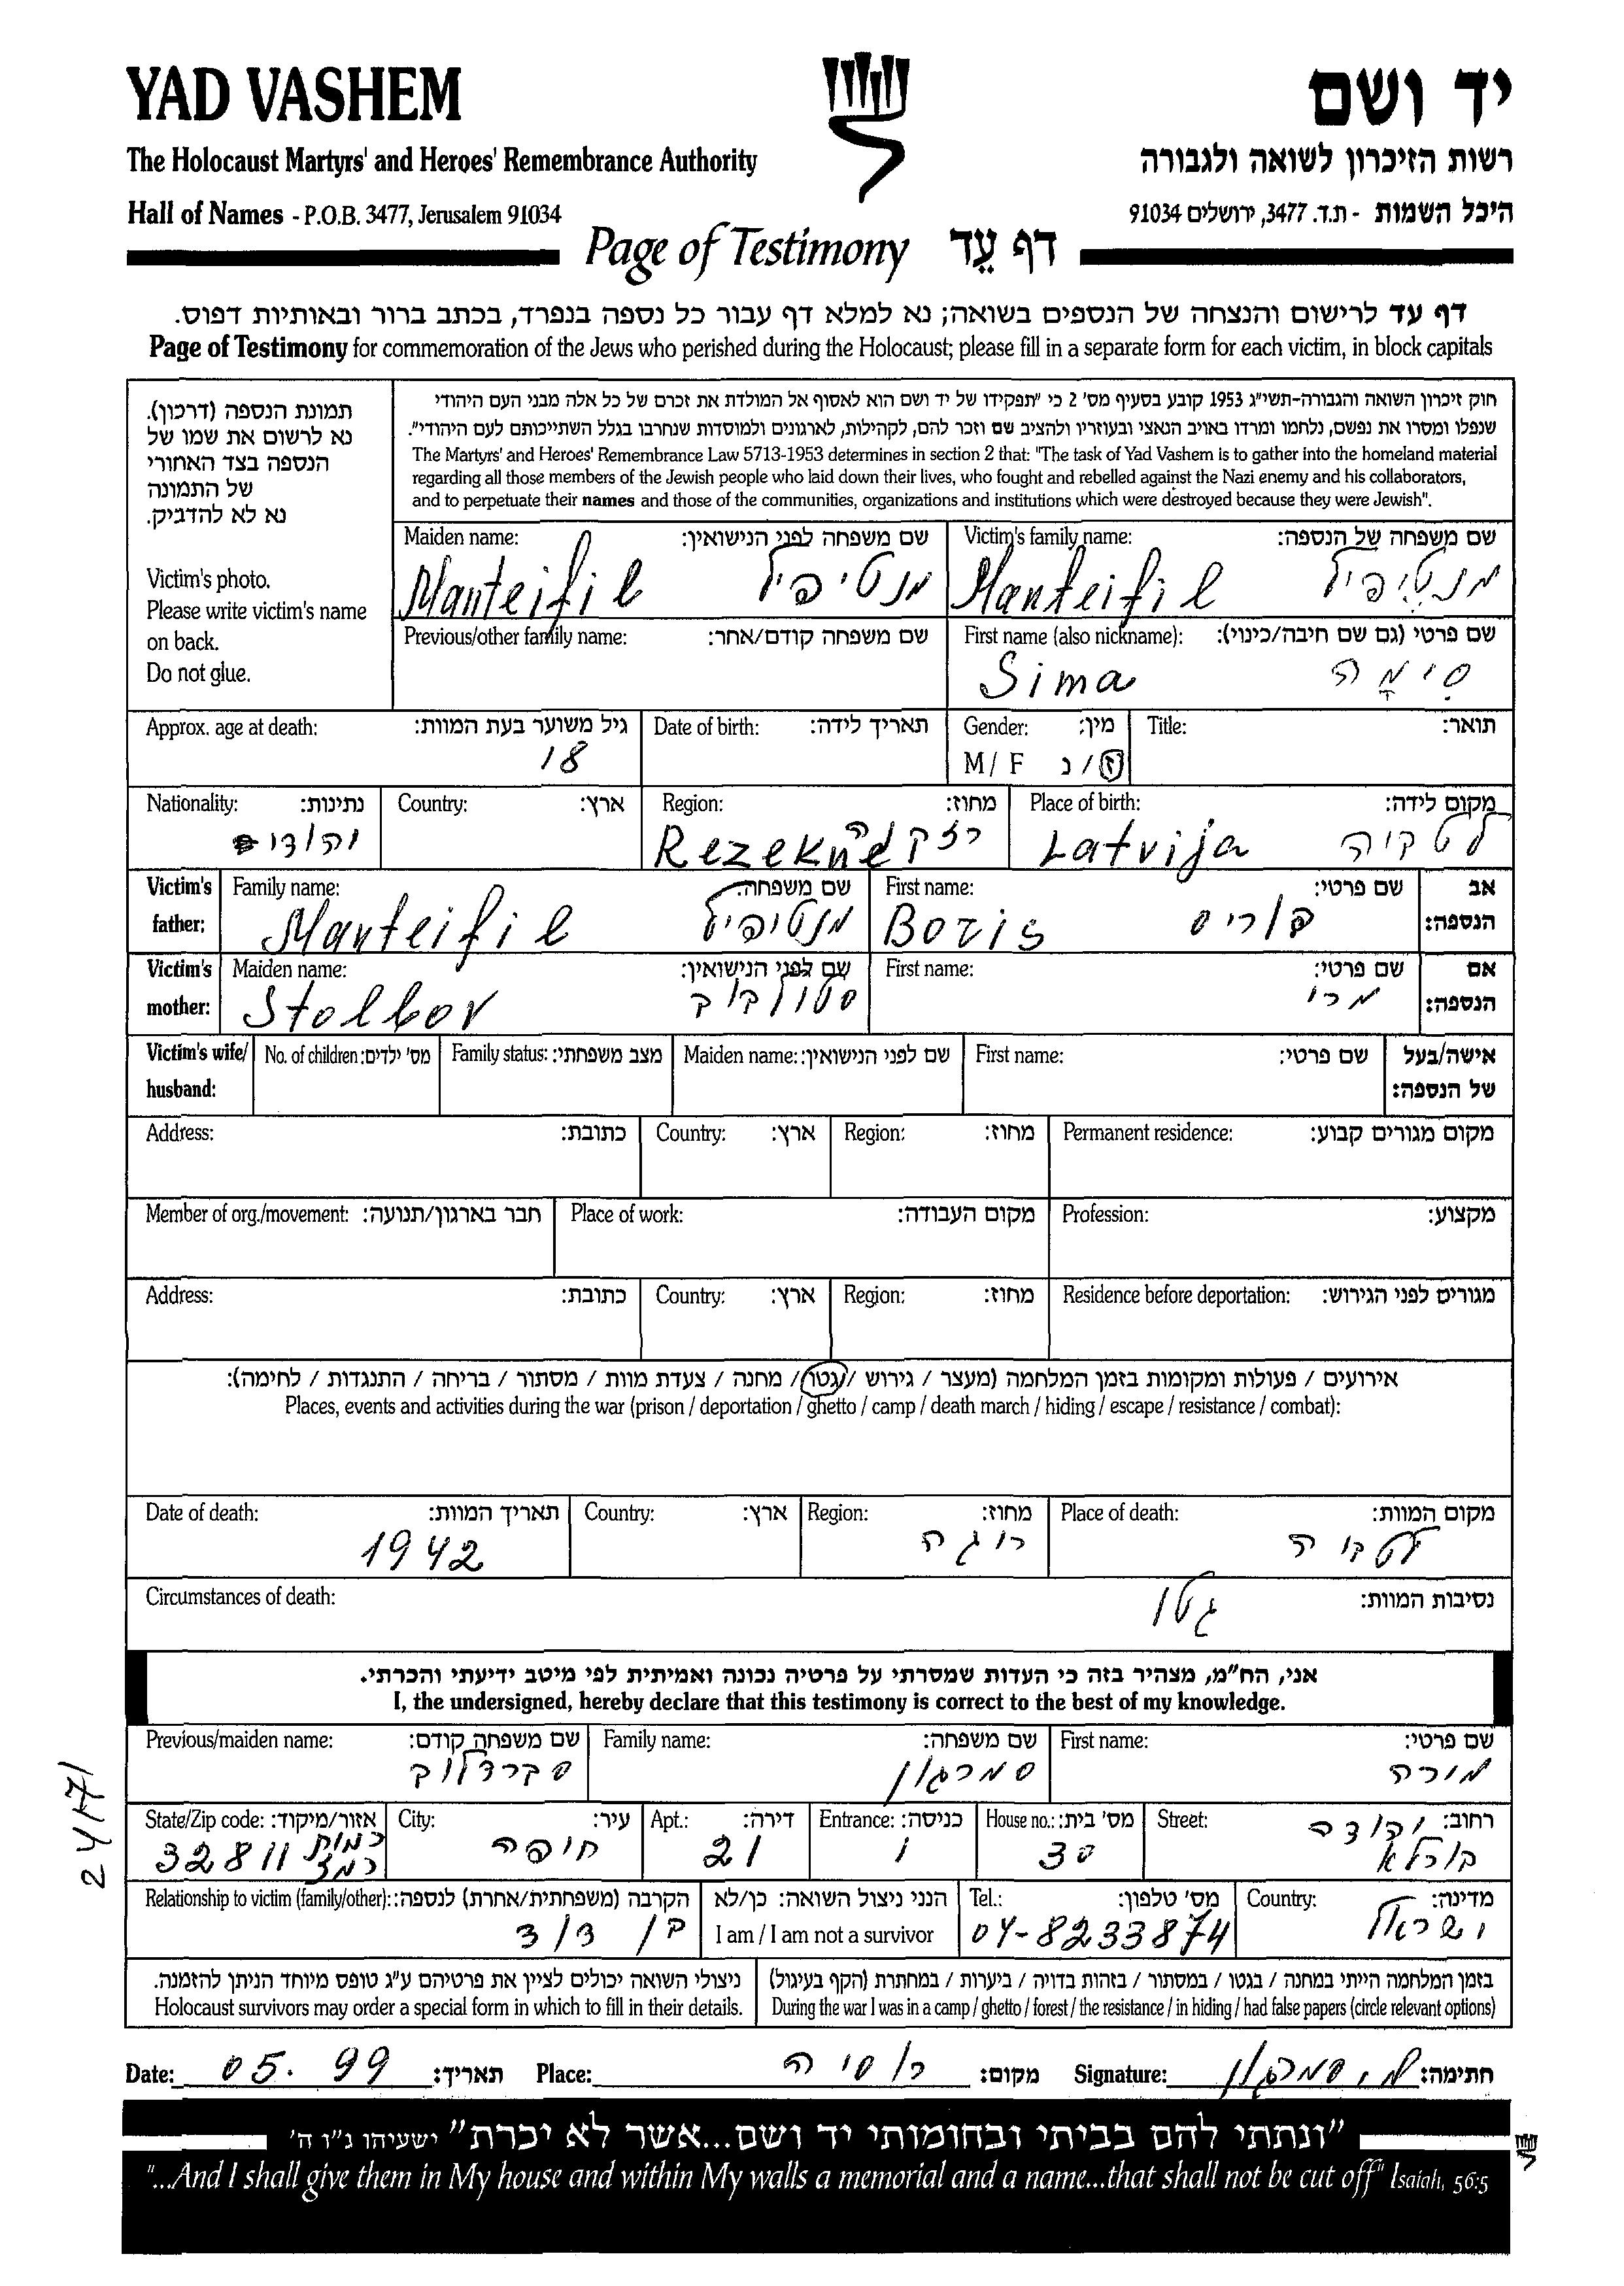 YAD VASHEM
יד ושם
The Holocaust Martyrs' and Heroes' Remembrance Authority
רשות הזיכרון לשואה ולגבורה
Hall of Names - P.O.B. 3477, Jerusalem 91034
היכל השמות - ת.ד. 3477, ירושלים 91034
Page of Testimony דף עֵד
דף עד לרישום והנצחה של הנספים בשואה; נא למלא דף עבור כל נספה בנפרד, בכתב ברור ובאותיות דפוס.
Page of Testimony for commemoration of the Jews who perished during the Holocaust; please fill in a separate form for each victim, in block capitals
תמונת הנספה (דרכון).
נא לרשום את שמו של
הנספה בצד האחורי
של התמונה
נא לא להדביק.
Victim's photo.
Please write victim's name
on back.
Do not glue.
חוק זיכרון השואה והגבורה-תשי"ג 1953 קובע בסעיף מס' 2 כי "תפקידו של יד ושם הוא לאסוף אל המולדת את זכרם של כל אלה מבני העם היהודי
שנפלו ומסרו את נפשם, נלחמו ומרדו באויב הנאצי ובעוזריו ולהציב שם וזכר להם, לקהילות, לארגונים ולמוסדות שנחרבו בגלל השתייכותם לעם היהודי".
The Martyrs' and Heroes' Remembrance Law 5713-1953 determines in section 2 that: "The task of Yad Vashem is to gather into the homeland material
regarding all those members of the Jewish people who laid down their lives, who fought and rebelled against the Nazi enemy and his collaborators,
and to perpetuate their names and those of the communities, organizations and institutions which were destroyed because they were Jewish".
Maiden name: שם משפחה לפני הנישואין:
Manteifil מנטיפיל
Victim's family name: שם משפחה של הנספה:
Manteifil מנטיפיל
Previous/other family name: שם משפחה קודם/אחר:
First name (also nickname): שם פרטי (גם שם חיבה/כינוי):
Sima סימה
Approx. age at death: גיל משוער בעת המוות:
18
Date of birth: תאריך לידה:
Gender: מין:
M / F ז / נ
Title: תואר:
Nationality: נתינות:
יהודי
Country: ארץ:
Region: מחוז:
Rezekne רזקנה
Place of birth: מקום לידה:
Latvija לטביה
Victim's father: אב הנספה:
Family name: שם משפחה:
Manteifil מנטיפיל
First name: שם פרטי:
Boris בוריס
Victim's mother: אם הנספה:
Maiden name: שם לפני הנישואין:
Stolbov סטולבוב
First name: שם פרטי:
מרי
Victim's wife/ husband: אישה/בעל של הנספה:
No. of children: מס' ילדים:
Family status: מצב משפחתי:
Maiden name: שם לפני הנישואין:
First name: שם פרטי:
Address: כתובת:
Country: ארץ:
Region: מחוז:
Permanent residence: מקום מגורים קבוע:
Member of org./movement: חבר בארגון/תנועה:
Place of work: מקום העבודה:
Profession: מקצוע:
Address: כתובת:
Country: ארץ:
Region: מחוז:
Residence before deportation: מגורים לפני הגירוש:
אירועים / פעולות ומקומות בזמן המלחמה (מעצר / גירוש / גטו / מחנה / צעדת מוות / מסתור / בריחה / התנגדות / לחימה):
Places, events and activities during the war (prison / deportation / ghetto / camp / death march / hiding / escape / resistance / combat):
Date of death: תאריך המוות:
1942
Country: ארץ:
Region: מחוז:
ריגה
Place of death: מקום המוות:
לטביה
Circumstances of death: נסיבות המוות:
גטו
אני, הח"מ, מצהיר בזה כי העדות שמסרתי על פרטיה נכונה ואמיתית לפי מיטב ידיעתי והכרתי.
I, the undersigned, hereby declare that this testimony is correct to the best of my knowledge.
Previous/maiden name: שם משפחה קודם:
סברדלוב
Family name: שם משפחה:
סמרגון
First name: שם פרטי:
מורה
State/Zip code: אזור/מיקוד:
רמות רמז
32811
City: עיר:
חיפה
Apt.: דירה:
21
Entrance: כניסה:
1
House no.: מס' בית:
30
Street: רחוב:
יהודה
בורלא
Relationship to victim (family/other): הקרבה (משפחתית/אחרת) לנספה:
בן דוד
הנני ניצול השואה: כן/לא
I am / I am not a survivor
Tel.: מס' טלפון:
04-8233874
Country: מדינה:
ישראל
ניצולי השואה יכולים לציין את פרטיהם ע"ג טופס מיוחד הניתן להזמנה.
Holocaust survivors may order a special form in which to fill in their details.
בזמן המלחמה הייתי במחנה / בגטו / במסתור / בזהות בדויה / ביערות / במחתרת (הקף בעיגול)
During the war I was in a camp / ghetto / forest / the resistance / in hiding / had false papers (circle relevant options)
Date: 05. 99 תאריך:
Place: רוסיה מקום:
Signature: מ. סמרגון חתימה:
"ונתתי להם בביתי ובחומותי יד ושם...אשר לא יכרת" ישעיהו נ"ו ה'
"...And I shall give them in My house and within My walls a memorial and a name...that shall not be cut off" Isaiah, 56:5